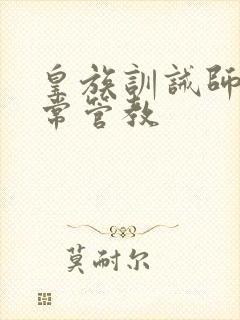 皇族訓誡師
常管教
莫耐尔